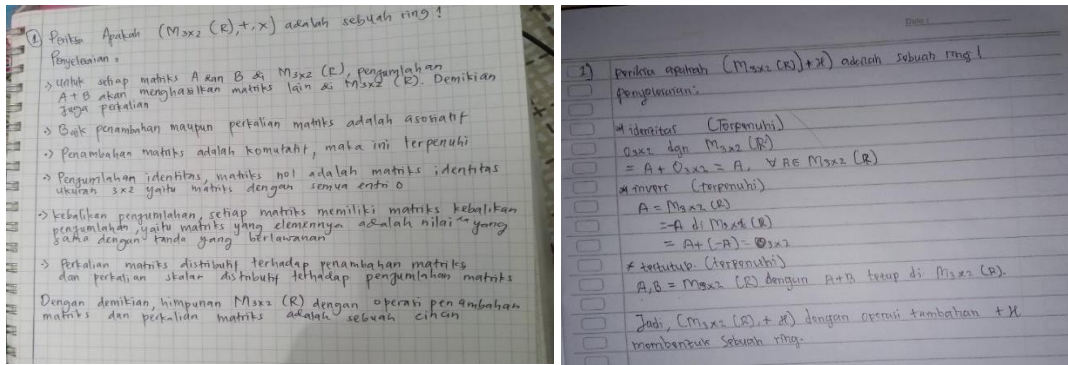 ① Periksa Apakah (M₃ₓ₂ (R), +, ×) adalah sebuah ring !
Penyelesaian :
→ untuk setiap matriks A dan B di M₃ₓ₂ (R), pengumlahan
A + B akan menghasilkan matriks lain di M₃ₓ₂ (R). Demikian
juga perkalian
→ Baik penambahan maupun perkalian matriks adalah asosiatif
→ Penambahan matriks adalah komutatif, maka ini terpenuhi
→ Pengumlahan identitas, matriks nol adalah matriks identitas
ukuran 3×2 yaitu matriks dengan semua entri 0
→ kebalikan pengumlahan, setiap matriks memiliki matriks kebalikan
pengumlahan, yaitu matriks yang elemennya adalah nilai² yang
sama dengan tanda yang berlawanan
→ Perkalian matriks distributif terhadap penambahan matriks
dan perkalian skalar distributif terhadap pengumlahan matriks
Dengan demikian, himpunan M₃ₓ₂ (R) dengan operasi penambahan
matriks dan perkalian matriks adalah sebuah cincin
1) periksa apakah (M₃ₓ₂ (R), + ×) adalah sebuah ring !
penyelesaian :
* identitas (Terpenuhi)
O₃ₓ₂ dgn M₃ₓ₂ (R)
= A + O₃ₓ₂ = A, ∀ A ∈ M₃ₓ₂ (R)
* invers (terpenuhi)
A = M₃ₓ₂ (R)
= -A di M₃ₓ₂ (R)
= A + (-A) = O₃ₓ₂
* tertutup. (terpenuhi)
A, B = M₃ₓ₂ (R) dengan A+B tetap di M₃ₓ₂ (R).
Jadi, (M₃ₓ₂ (R), + ×) dengan operasi tambahan + ×
membentuk sebuah ring.